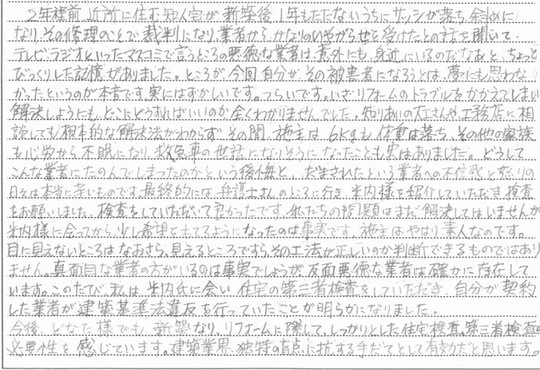 2年程前、近所に住む知人宅が新築後1年もたたないうちにサッシが落ち、斜めに
なり、その修理のことで裁判になり業者から、かなりいやがらせを受けたとの話を聞いて
テレビ・ラジオといったマスコミで言うところの悪徳な業者は、意外にも、身近にいるのだなあと、ちょっと
びっくりした記憶がありました。ところが、今回自分が、その被害者になろうとは、夢にも思わな
かったというのが本音です。実にはずかしいです。つらいです。いざリフォームのトラブルをかかえてしまい
解決しようにも、どこにどうすればいいのか全くわかりませんでした。知りあいの大工さんや工務店に相
談しても根本的な解決法がわからず その間、施主は、6kgも体重は落ち、その他の家族
も心労から不眠になり、救急車の世話になりそうになったことも実はありました。どうして
こんな業者にたのんでしまったのかという後悔と、だまされたという業者への不信感と怒りの
日々は本当に辛いものです。最終的には、弁護士さんのもとに行き、米内様を紹介していただき検査
をお願いしました。検査をしていただいて良かったです。私たちの問題はまだ解決してはいませんが
米内様に会ってから、少し希望をもてるようになったのは事実です。施主はやはり素人なのです。
目に見えないところはなおさら、見えるところですらその工法が正しいのか判断できるものではあり
ません。真面目な業者の方がいるのは事実でしょうが、反面悪徳な業者は確かに存在して
います。このたび、私は、米内氏に会い 住宅の第三者検査をしていただき、自分が契約
した業者が建築基準法違反を行っていたことが明らかになりました。
今後、どなた様でも、新築なり、リフォームに際して、しっかりとした住宅検査、第三者検査の
必要性を感じています。建築業界、独特の盲点に抗する手だてとして有効だと思います。